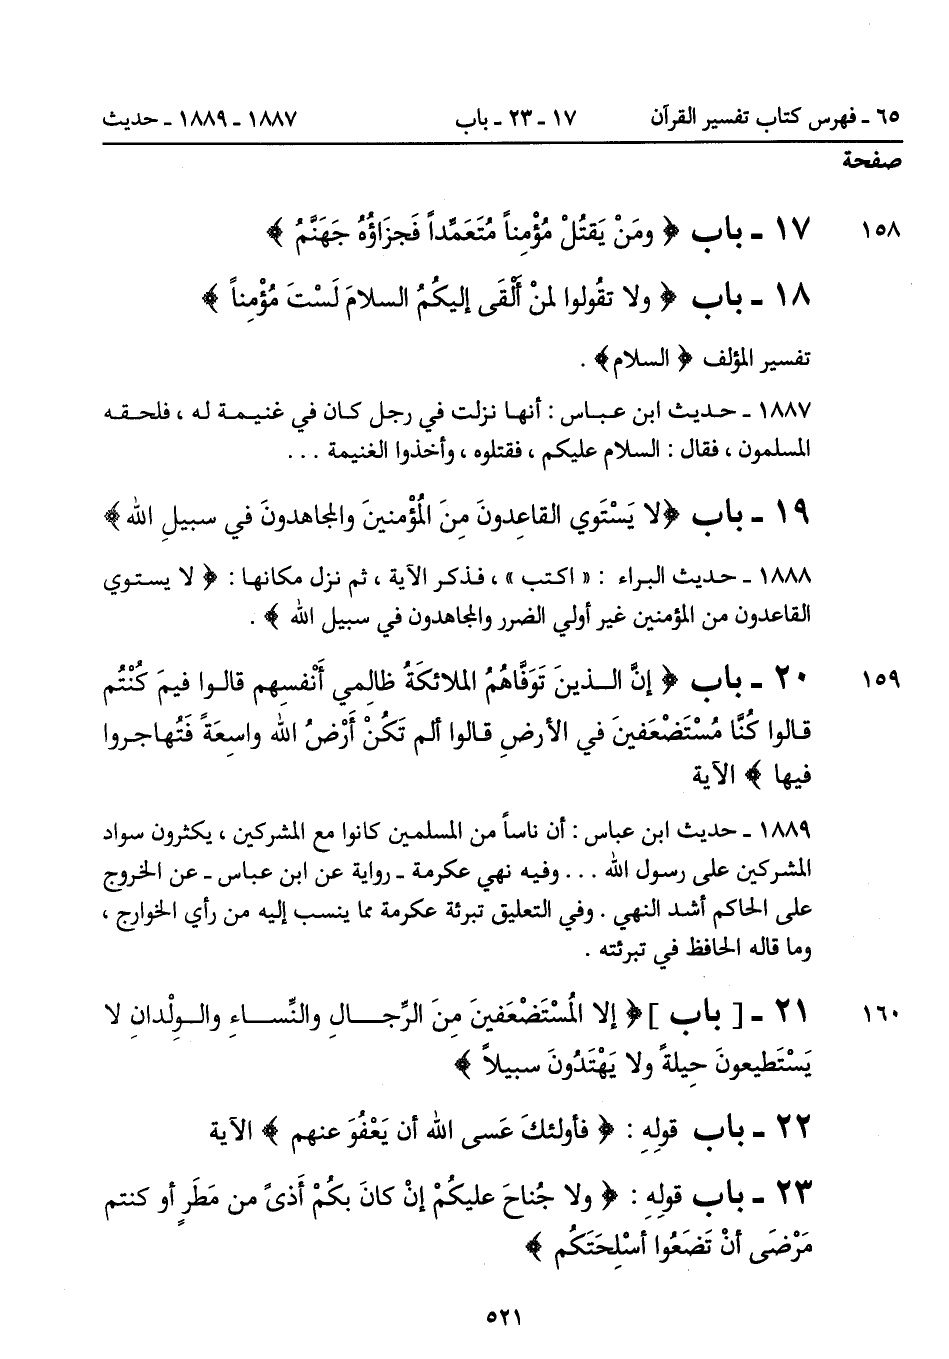 ٦٥ - فهرس كتاب تفسير القرآن ١٧ - ٢٣ - باب ١٨٨٧ - ١٨٨٩ - حديث
صفحة
١٥٨ ١٧ - باب ﴿ ومَنْ يَقتُلْ مُؤْمِناً مُتَعَمِّداً فَجزَاؤُهُ جَهَنَّمُ ﴾
١٨ - باب ﴿ ولا تقُولوا لمنْ أَلْقَى إليكُمُ السلامَ لَسْتَ مُؤْمِناً ﴾
تفسير المؤلف ﴿ السلام﴾ .
١٨٨٧ - حديث ابن عباس : أنها نزلت في رجل كان في غنيمة له ، فلحقه
المسلمون ، فقال : السلام عليكم ، فقتلوه ، وأخذوا الغنيمة ...
١٩ - باب ﴿لا يَسْتَوي القاعِدونَ مِنَ المُؤْمنينَ والمجاهدونَ في سبيلِ الله﴾
١٨٨٨ - حديث البراء : « اكتب » ، فذكر الآية ، ثم نزل مكانها : ﴿ لا يستوي
القاعدون من المؤمنين غير أولي الضرر والمجاهدون في سبيل الله ﴾ .
١٥٩ ٢٠ - باب ﴿ إنَّ الذينَ تَوَفَّاهُمُ الملائكَةُ ظالِمي أَنْفسِهم قالوا فيمَ كُنْتُم
قالوا كُنَّا مُسْتَضْعَفينَ في الأرضِ قالوا ألم تَكُنْ أَرْضُ الله واسعَةً فَتُهاجروا
فيها ﴾ الآية
١٨٨٩ - حديث ابن عباس : أن ناساً من المسلمين كانوا مع المشركين ، يكثرون سواد
المشركين على رسول الله ... وفيه نهي عكرمة - رواية عن ابن عباس - عن الخروج
على الحاكم أشد النهي . وفي التعليق تبرئة عكرمة مما ينسب إليه من رأي الخوارج ،
وما قاله الحافظ في تبرئته .
١٦٠ ٢١ - [ باب ]﴿ إلا المُسْتَضْعَفينَ مِنَ الرِّجالِ والنِّساءِ والولْدانِ لا
يَسْتَطيعونَ حِيلةً ولا يَهْتَدُونَ سبيلاً ﴾
٢٢ - باب قولِهِ : ﴿ فأولئكَ عَسى الله أن يَعْفُوَ عنهم ﴾ الآية
٢٣ - باب قولِهِ : ﴿ ولا جُناحَ عليكُمْ إنْ كانَ بكُمْ أَذىً من مَطَرٍ أو كنتم
مَرْضَى أنْ تَضَعُوا أسْلِحَتَكُم ﴾
٥٢١